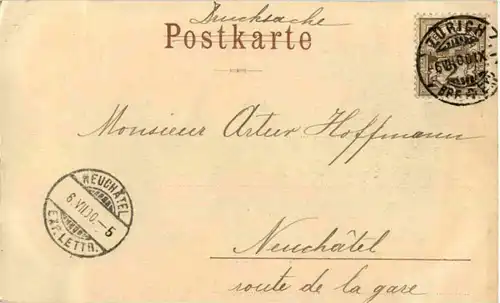 Drucksache
Postkarte
ZÜRICH
Monsieur Artur Hoffmann
NEUCHÂTEL
6.VII.00.-5
EXP. LETTR.
Neuchâtel
route de la gare